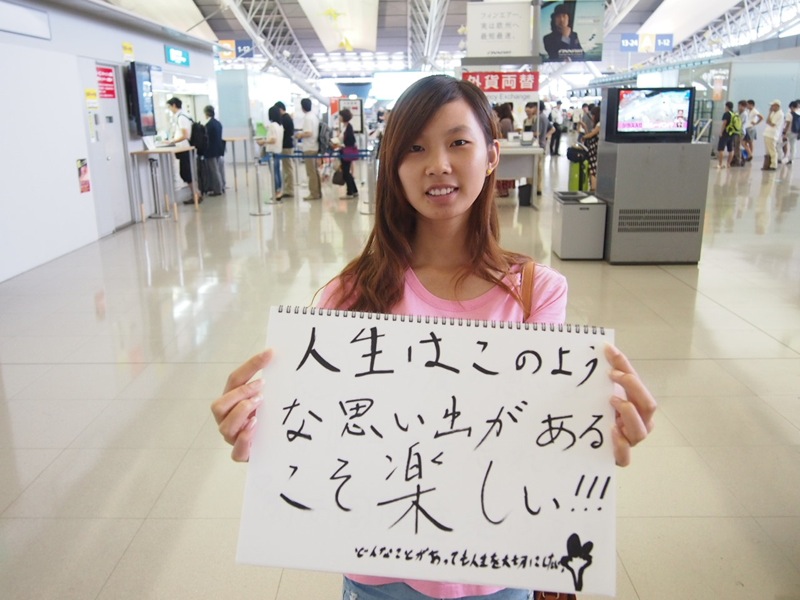 人生はこのよう
な思い出がある
こそ楽しい!!!
どんなことがあっても人生を大切にしたい
外貨両替
Currency Exchange
1-12
13-24
1-12